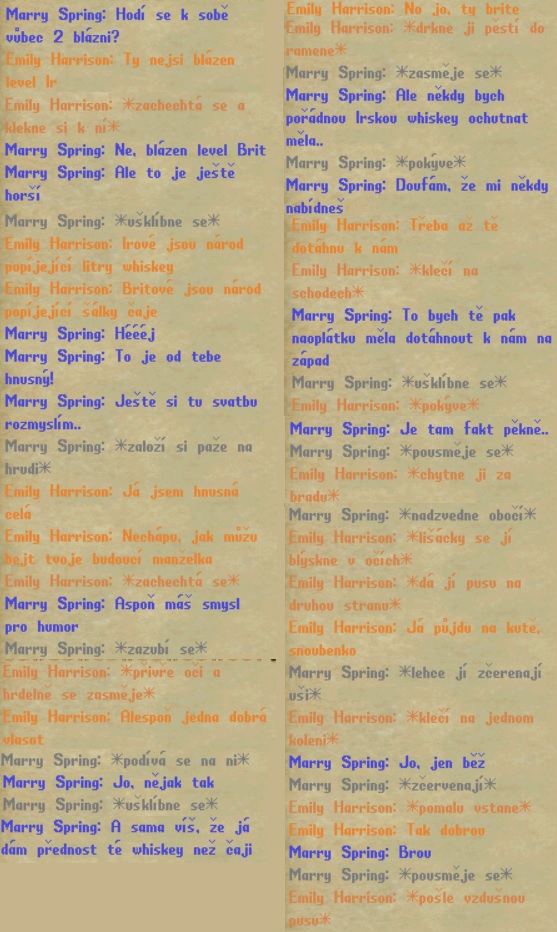 Marry Spring: Hodí se k sobě
vůbec 2 blázni?
Emily Harrison: Ty nejsi blázen
level Ir
Emily Harrison: *zachechtá se a
klekne si k ní*
Marry Spring: Ne, blázen level Brit
Marry Spring: Ale to je ještě
horší
Marry Spring: *ušklíbne se*
Emily Harrison: Irové jsou národ
popíjející litry whiskey
Emily Harrison: Britové jsou národ
popíjející šálky čaje
Marry Spring: Héééj
Marry Spring: To je od tebe
hnusný!
Marry Spring: Ještě si tu svatbu
rozmyslím..
Marry Spring: *založí si paže na
hrudi*
Emily Harrison: Já jsem hnusná
celá
Emily Harrison: Nechápu, jak můžu
bejt tvoje budoucí manželka
Emily Harrison: *zachechtá se*
Marry Spring: Aspoň máš smysl
pro humor
Marry Spring: *zazubí se*
Emily Harrison: *přivře oči a
hrdelně se zasměje*
Emily Harrison: Alespoň jedna dobrá
vlasot
Marry Spring: *podívá se na ni*
Marry Spring: Jo, nějak tak
Marry Spring: *ušklíbne se*
Marry Spring: A sama víš, že já
dám přednost té whiskey než čaji
Emily Harrison: No jo, ty brite
Emily Harrison: *drkne ji pěstí do
ramene*
Marry Spring: *zasměje se*
Marry Spring: Ale někdy bych
pořádnou Irskou whiskey ochutnat
měla..
Marry Spring: *pokýve*
Marry Spring: Doufám, že mi někdy
nabídneš
Emily Harrison: Třeba až tě
dotáhnu k nám
Emily Harrison: *klečí na
schodech*
Marry Spring: To bych tě pak
naoplátku měla dotáhnout k nám na
západ
Marry Spring: *ušklíbne se*
Emily Harrison: *pokýve*
Marry Spring: Je tam fakt pěkně..
Marry Spring: *pousměje se*
Emily Harrison: *chytne ji za
bradu*
Marry Spring: *nadzvedne obočí*
Emily Harrison: *lišácky se jí
blýskne v očích*
Emily Harrison: *dá jí pusu na
druhou stranu*
Emily Harrison: Já půjdu na kutě,
snoubenko
Marry Spring: *lehce jí zčerenají
uši*
Emily Harrison: *klečí na jednom
koleni*
Marry Spring: Jo, jen běž
Marry Spring: *zčervenají*
Emily Harrison: *pomalu vstane*
Emily Harrison: Tak dobrou
Marry Spring: Brou
Marry Spring: *pousměje se*
Emily Harrison: *pošle vzdušnou
pusu*